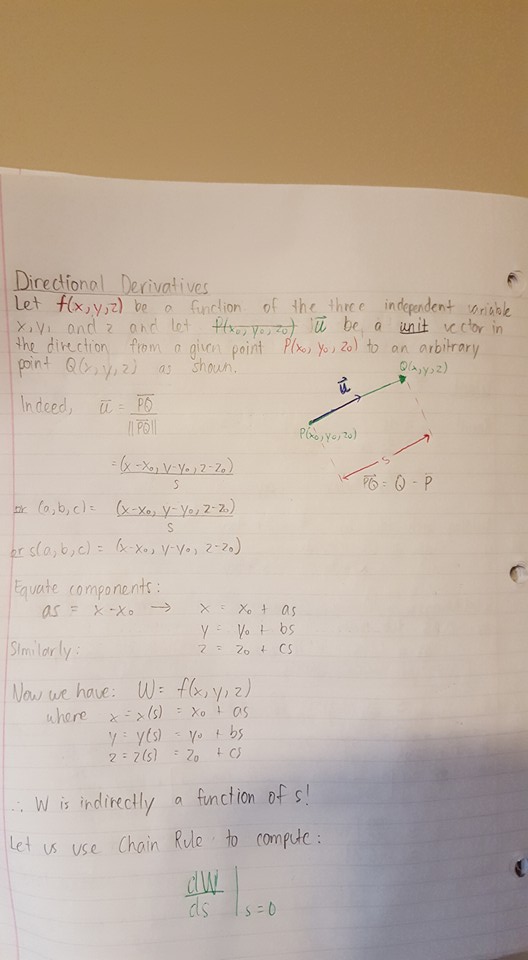 Directional Derivatives
Let f(x,y,z) be a function of the three independent variable
x, y, and z and let P(x₀, y₀, z₀) u⃗ be a unit vector in
the direction from a given point P(x₀, y₀, z₀) to an arbitrary
point Q(x, y, z) as shown.
Q(x,y,z)
u⃗
P(x₀,y₀,z₀)
s
PQ = Q - P
Indeed, u⃗ = PQ / ||PQ||
= (x-x₀, y-y₀, z-z₀) / s
or (a,b,c) = (x-x₀, y-y₀, z-z₀) / s
or s(a,b,c) = (x-x₀, y-y₀, z-z₀)
Equate components:
as = x-x₀ → x = x₀ + as
y = y₀ + bs
Similarly: z = z₀ + cs
Now we have: W = f(x, y, z)
where x = x(s) = x₀ + as
y = y(s) = y₀ + bs
z = z(s) = z₀ + cs
∴ W is indirectly a function of s!
Let us use Chain Rule to compute:
dW/ds |s=0